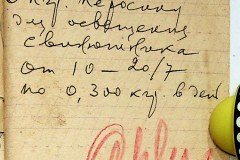 кг. керосину
для освещения
свинарника
от 10 - 20/7
по 0,300 кг. в день